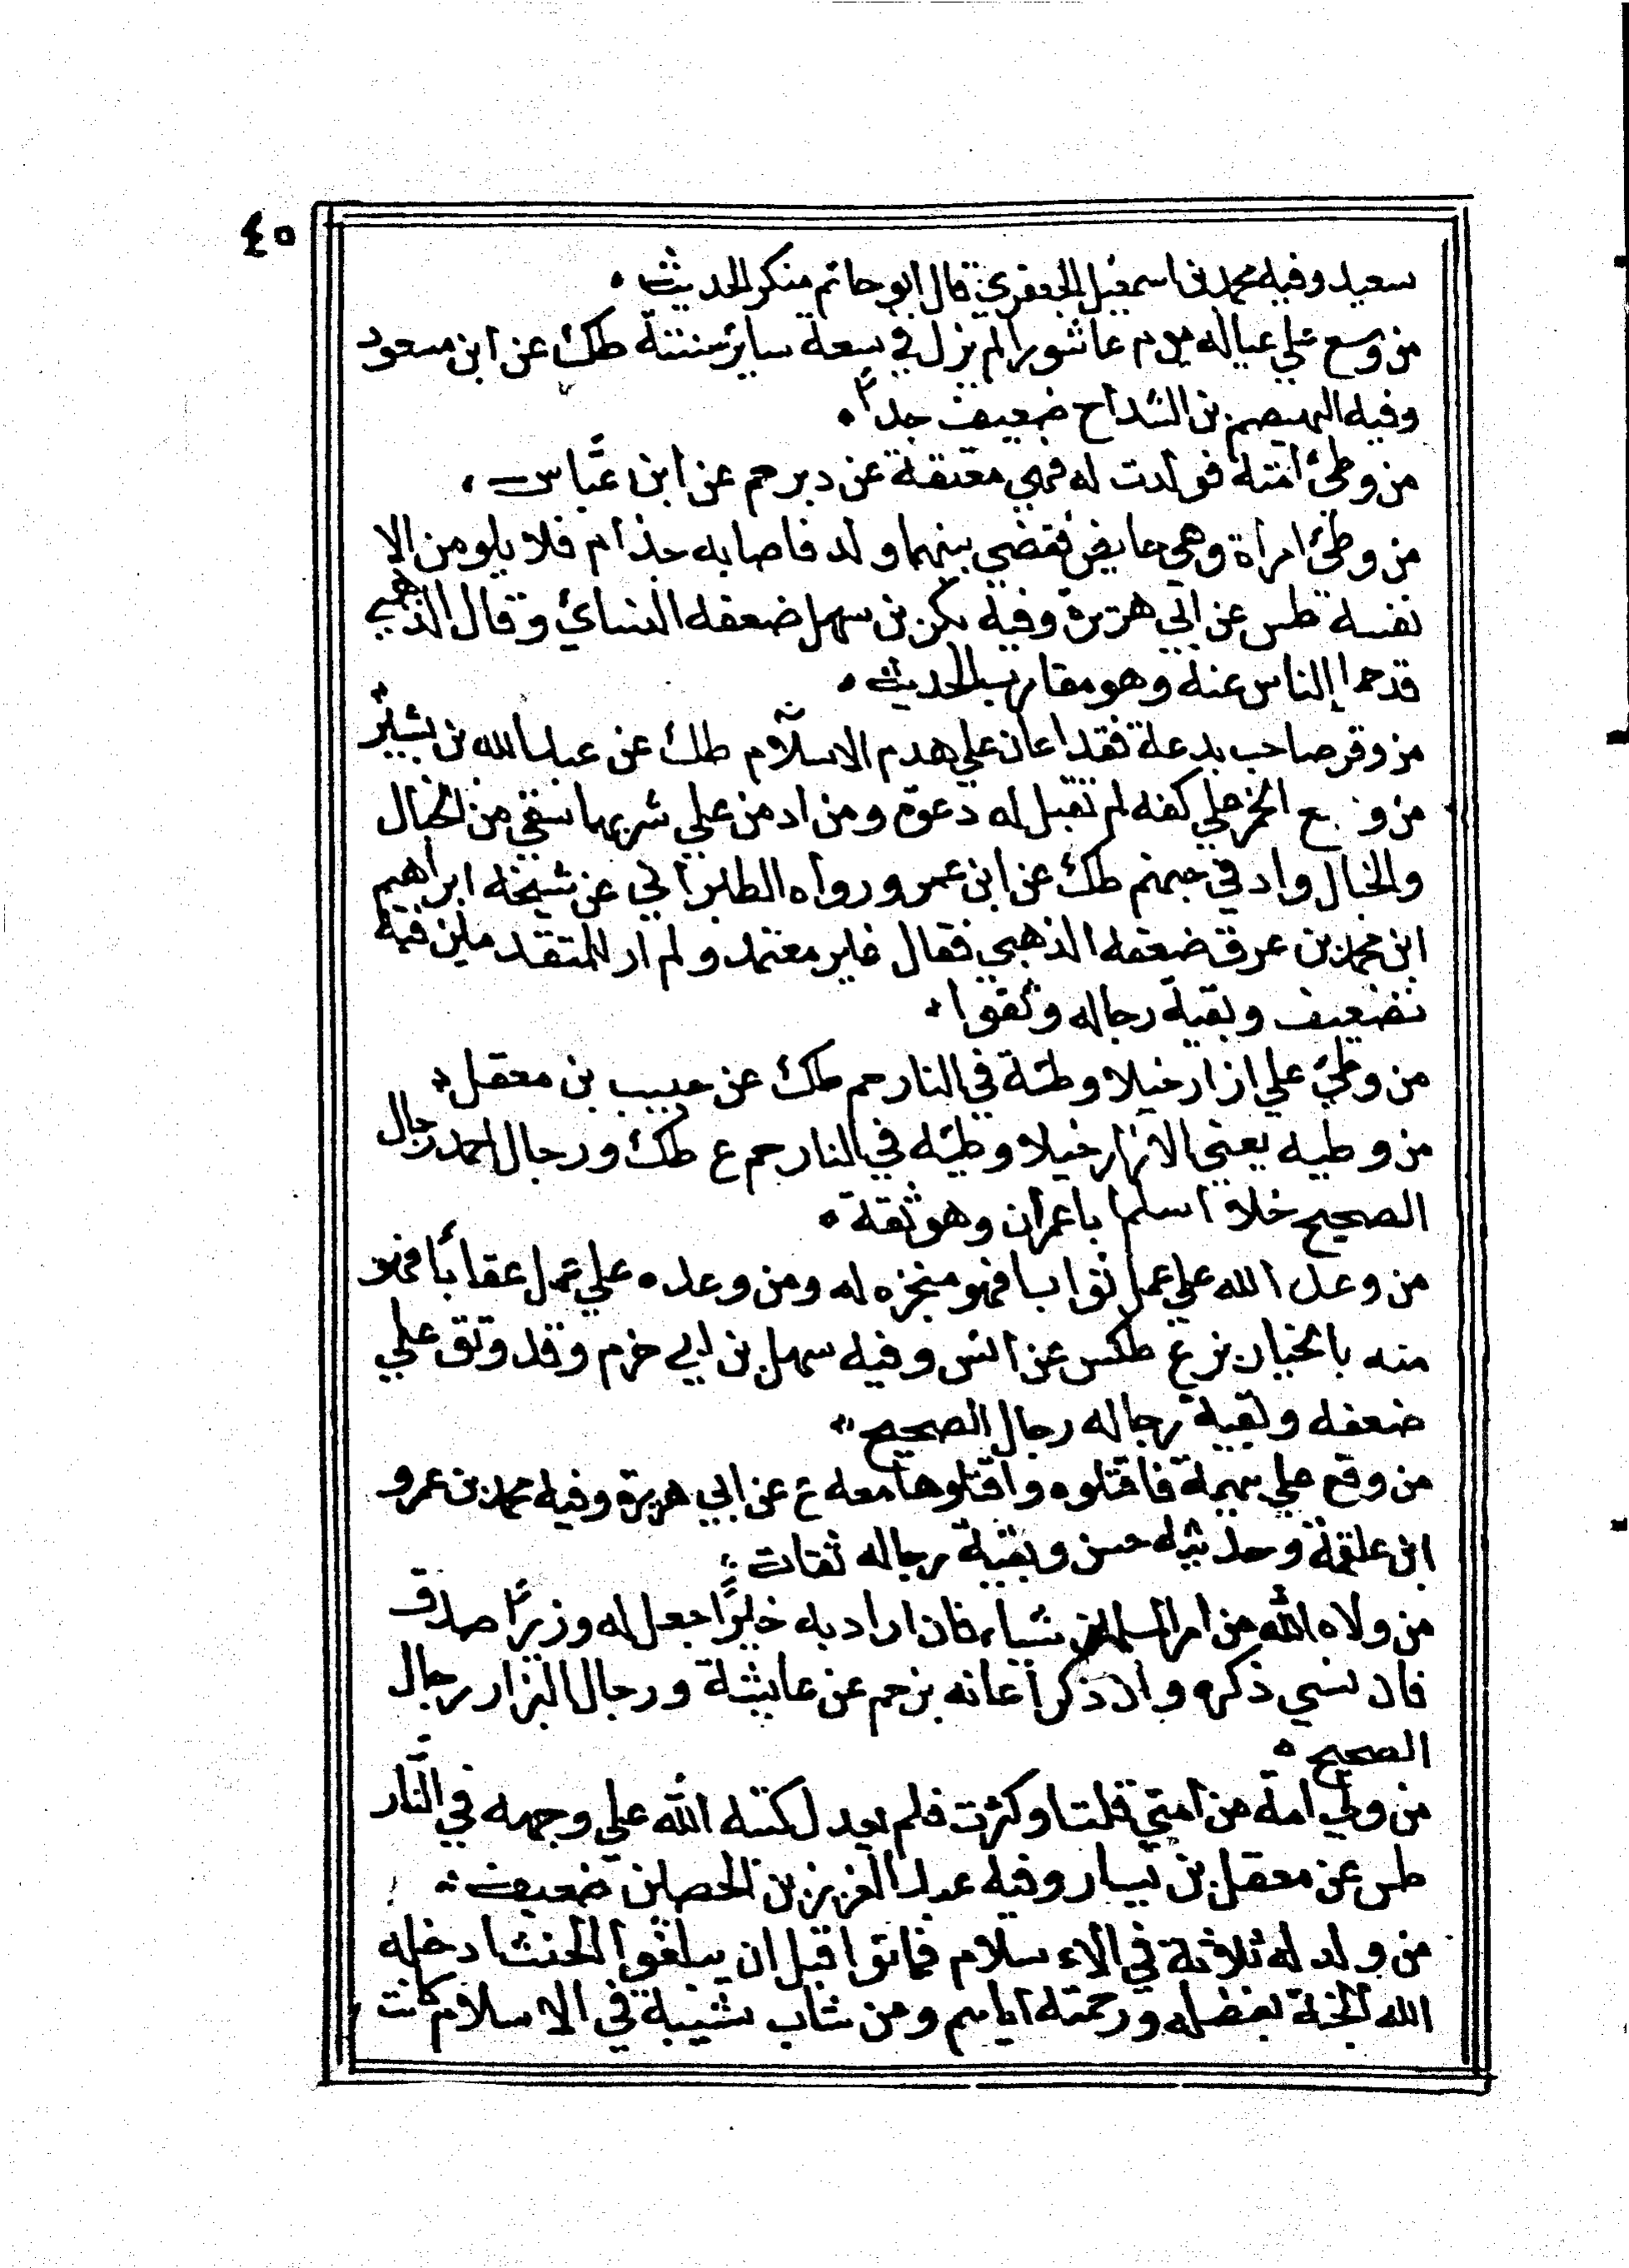 ٤٥
سعيد وفيه محمد بن اسمعيل الجعفري قال ابو حاتم منكر الحديث
من وسع علي عياله يوم عاشورا لم يزل في سعة ساير سنته طك عن ابن مسعود
وفيه الهيصم بن الشداح ضعيف جداً
من وطئ امته فولدت له فهي معتقة عن دبر حم عن ابن عباس
من وطئ امراة وهي حايض فقضي بينهما ولد فاصابه جذام فلا يلومن الا
نفسه طس عن ابي هريرة وفيه بكر بن سهل ضعفه النسائ وقال الذهبي
قد حمل الناس عنه وهو مقارب الحديث
من وقر صاحب بدعة فقد اعان علي هدم الاسلام طك عن عبد الله بن بشير
من و ع الخمر علي كفه لم تقبل له دعوة ومن ادمن علي شربها سقي من الخبال
والخبال واد في جهنم طك عن ابن عمر ورواه الطبراني عن شيخه ابراهيم
ابن محمد بن عرق ضعفه الذهبي فقال غير معتمد ولم ار للمتقدمين فيه
تضعيف وبقية رجاله وثقوا
من وطئ علي ازار خيلا وطئه في النار حم طك عن حبيب بن معقل
من وطيه يعني الازار خيلا وطيه في النار حم ع طك ورجال احمد رجال
الصحيح خلا اسلم ابا عمران وهو ثقة
من وعد الله علي عمل ثوابا فهو منجزه له ومن وعده علي عمل عقابًا فهو
منه بالخيار بز ع طكس عن انس وفيه سهل بن ابي حزم وقد وثق علي
ضعفه وبقية رجاله رجال الصحيح
من وقع علي بهيمة فاقتلوه واقتلوها معه ع عن ابي هريرة وفيه محمد بن عمرو
ابن علقمة وحديثه حسن وبقية رجاله ثقات
من ولاه الله من امر المسلمين شيا فان اراد به خيرًا جعل له وزيرًا صدق
فان نسي ذكره وان ذكر اعانه بز حم عن عايشة ورجال البزار رجال
الصحيح
من ولي امة من امتي قلت او كثرت فلم يعدل كبه الله علي وجهه في النار
طس عن معقل بن يسار وفيه عبد العزيز بن الحصين ضعيف
من ولد له ثلاثة في الاسلام فماتوا قبل ان يبلغوا الحنث ادخله
الله الجنة بفضله ورحمته اياهم ومن شاب شيبة في الاسلام كانت